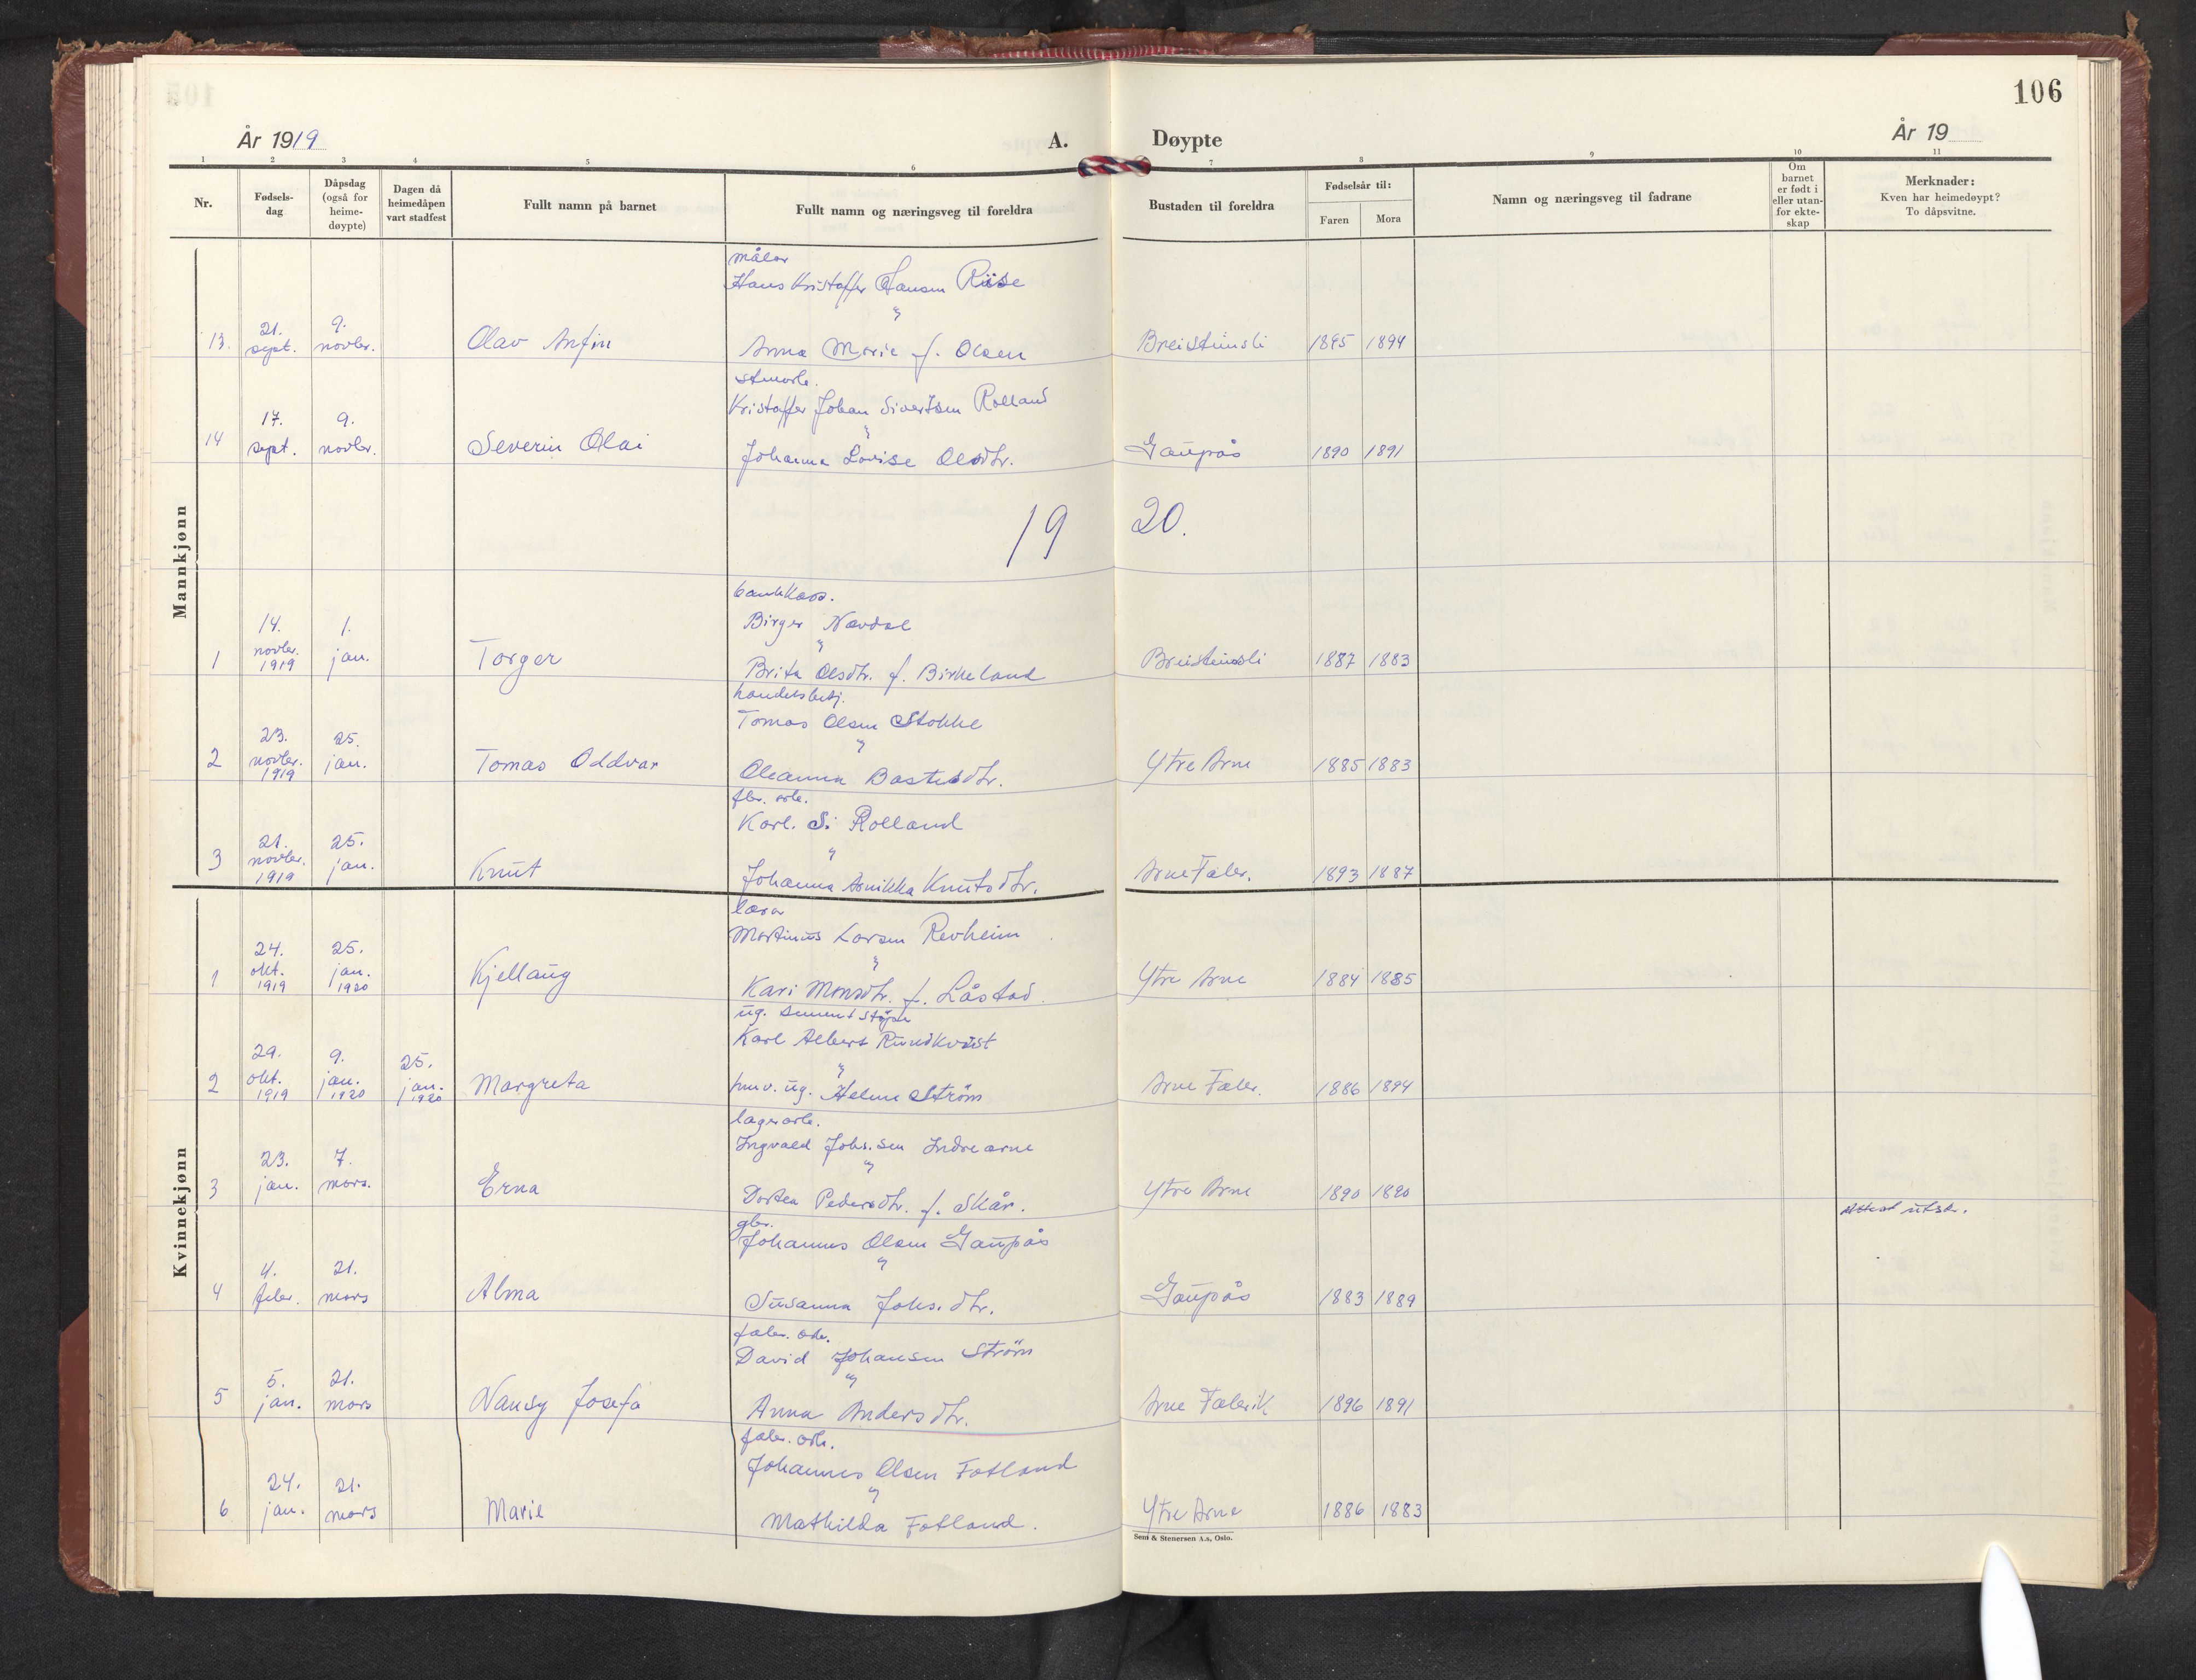 106
År 1919
A.
Døypte
År 19
1 2 3 4 5 6 7 8 9 10 11
Nr.
Fødsels-
dag
Dåpsdag
(også for
heime-
døypte)
Dagen då
heimedåpen
vart stadfest
Fullt namn på barnet
Fullt namn og næringsveg til foreldra
Bustaden til foreldra
Fødselsår til:
Faren Mora
Namn og næringsveg til fadrane
Om
barnet
er født i
eller utan-
for ekte-
skap
Merknader:
Kven har heimedøypt?
To dåpsvitne.
Mannkjønn
målar
Hans Kristoffer Hansen Riise
"
13. 21. sept. 9. novbr. Olav Anfin Anna Marie f. Olsen Breisteinsli 1895 1894
Kristoffer Johan Sivertsen Rolland
"
14 17. sept. 9. novbr. Severin Olai Johanna Lovise Olsdtr. Gaupås 1890 1891
19 20.
bankkass.
Birger Nævdal
"
1 14. novbr. 1919 1. jan. Torger Brita Olsdtr. f. Birkeland Breisteinsli 1887 1883
handelsbetj.
Tomas Olsen Stokke
"
2 23. novbr. 1919 25. jan. Tomas Oddvar Oleanna Bastesdtr. Ytre Arne 1885 1883
fbr. arb.
Karl. S. Rolland
"
3 21. novbr. 1919 25. jan. Knut Johanna Annikka Knutsdtr. Arne Fabr. 1893 1887
Kvinnekjønn
lærar
Martinus Larsen Revheim
"
1 24. okt. 1919 25. jan. 1920 Kjellaug Kari Monsdtr. f. Låstad. Ytre Arne 1884 1885
ug. sementstøpar
Karl Albert Rundkvist
"
2 29. okt. 1919 9. jan. 1920 25. jan. 1920 Margreta ug. Helene Ström Arne Faber. 1886 1894
lagerarb.
Ingvald Johs.sen Indrearne
"
3 23. jan. 7. mars. Erna Dortea Pedersdtr. f. Skår. Ytre Arne 1890 1890
attest utst.
gbr.
Johannes Olsen Gaupås
"
4 4. febr. 21. mars Alma Susanna Johs.dtr. Gaupås 1883 1889
fabr. arb.
David Johansen Ström
"
5 5. jan. 21. mars Nansy Josefa Anna Andersdtr. Arne Fabrik 1896 1891
fabr. arb.
Johannes Olsen Fotland
"
6 24. jan. 21. mars Marie Mathilda Fotland. Ytre Arne 1886 1883
Sem & Stenersen A.s, Oslo.